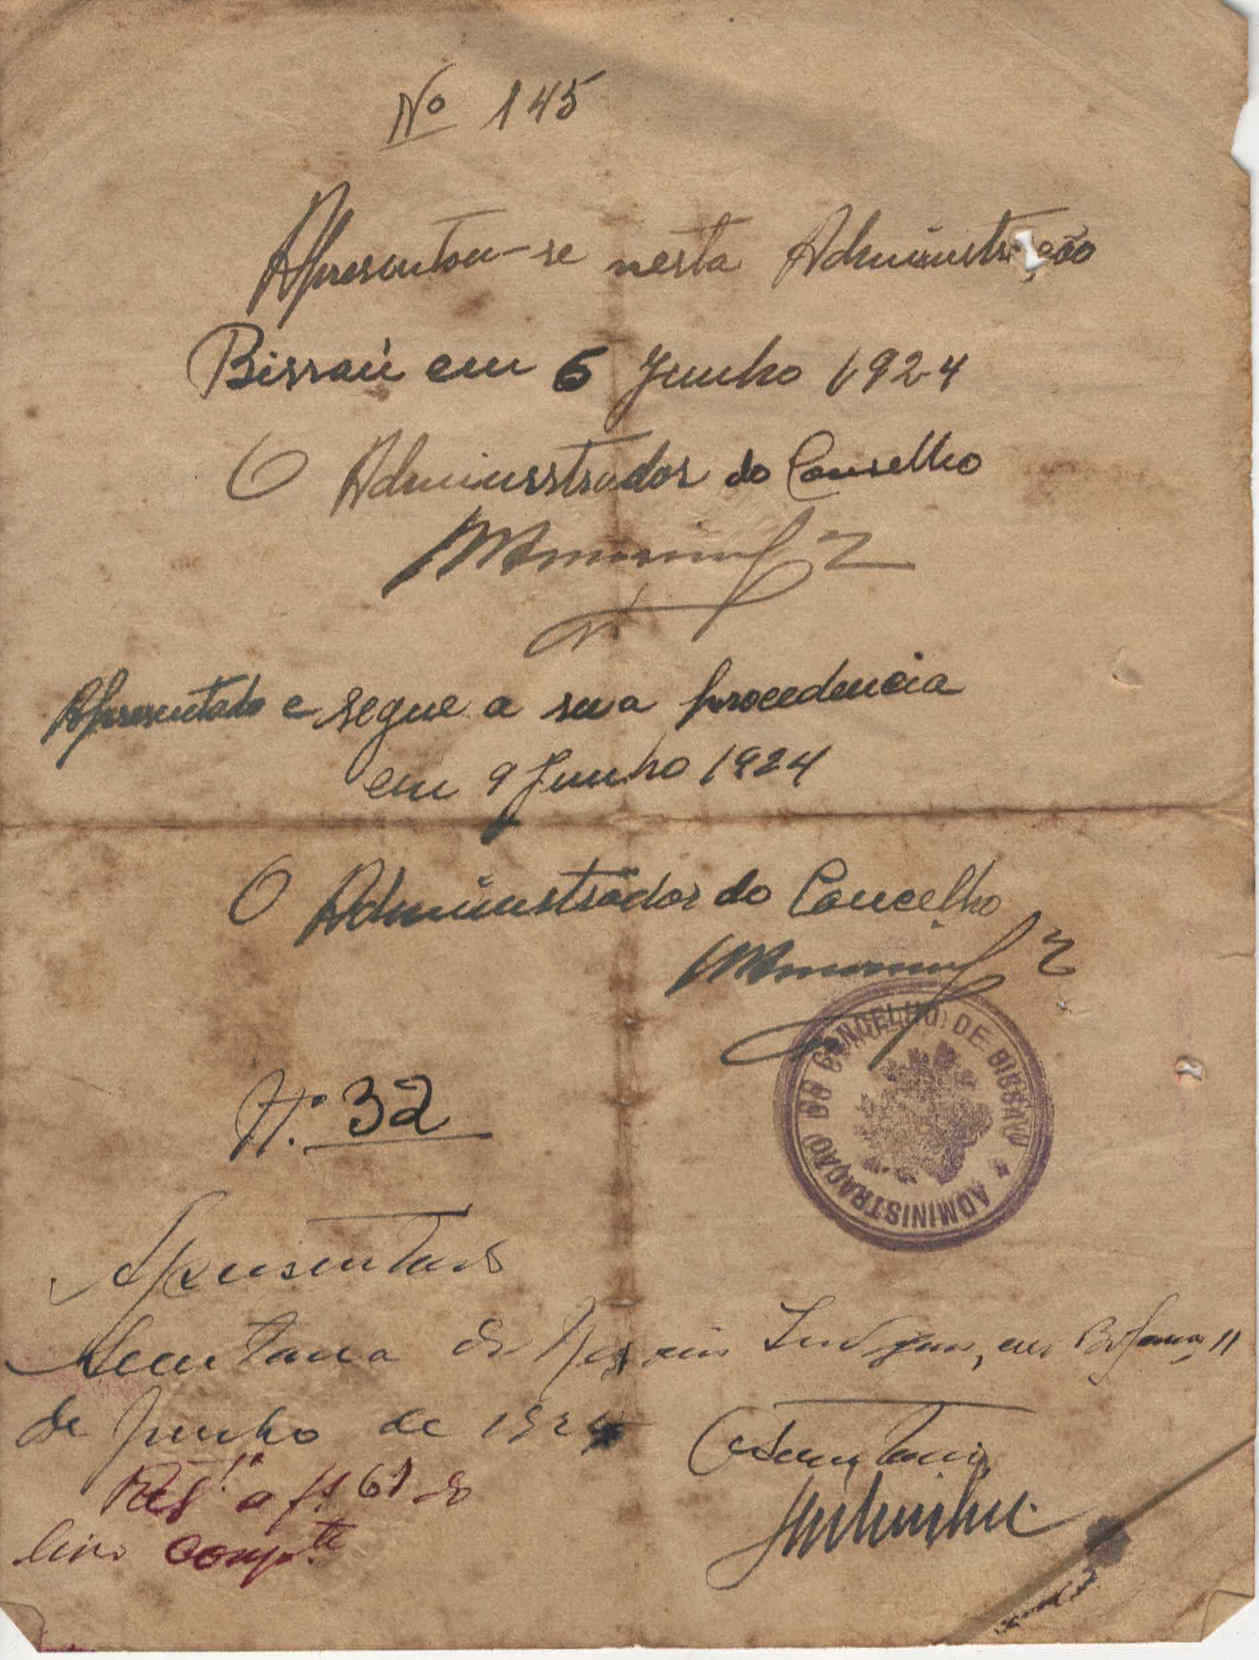 Nº 145
Apresentou-se nesta Administração
Bissau em 6 Junho 1924
O Administrador do Conselho
Apresentado e segue a sua procedencia
em 9 Junho 1924
O Administrador do Concelho
ADMINISTRAÇÃO DO CONCELHO DE BISSAU
N.º 32
Apresentado
Secretaria de em Bolama 11
de Junho de 1924
O Secretario
Reg. a fs 61 do
livro comp.te